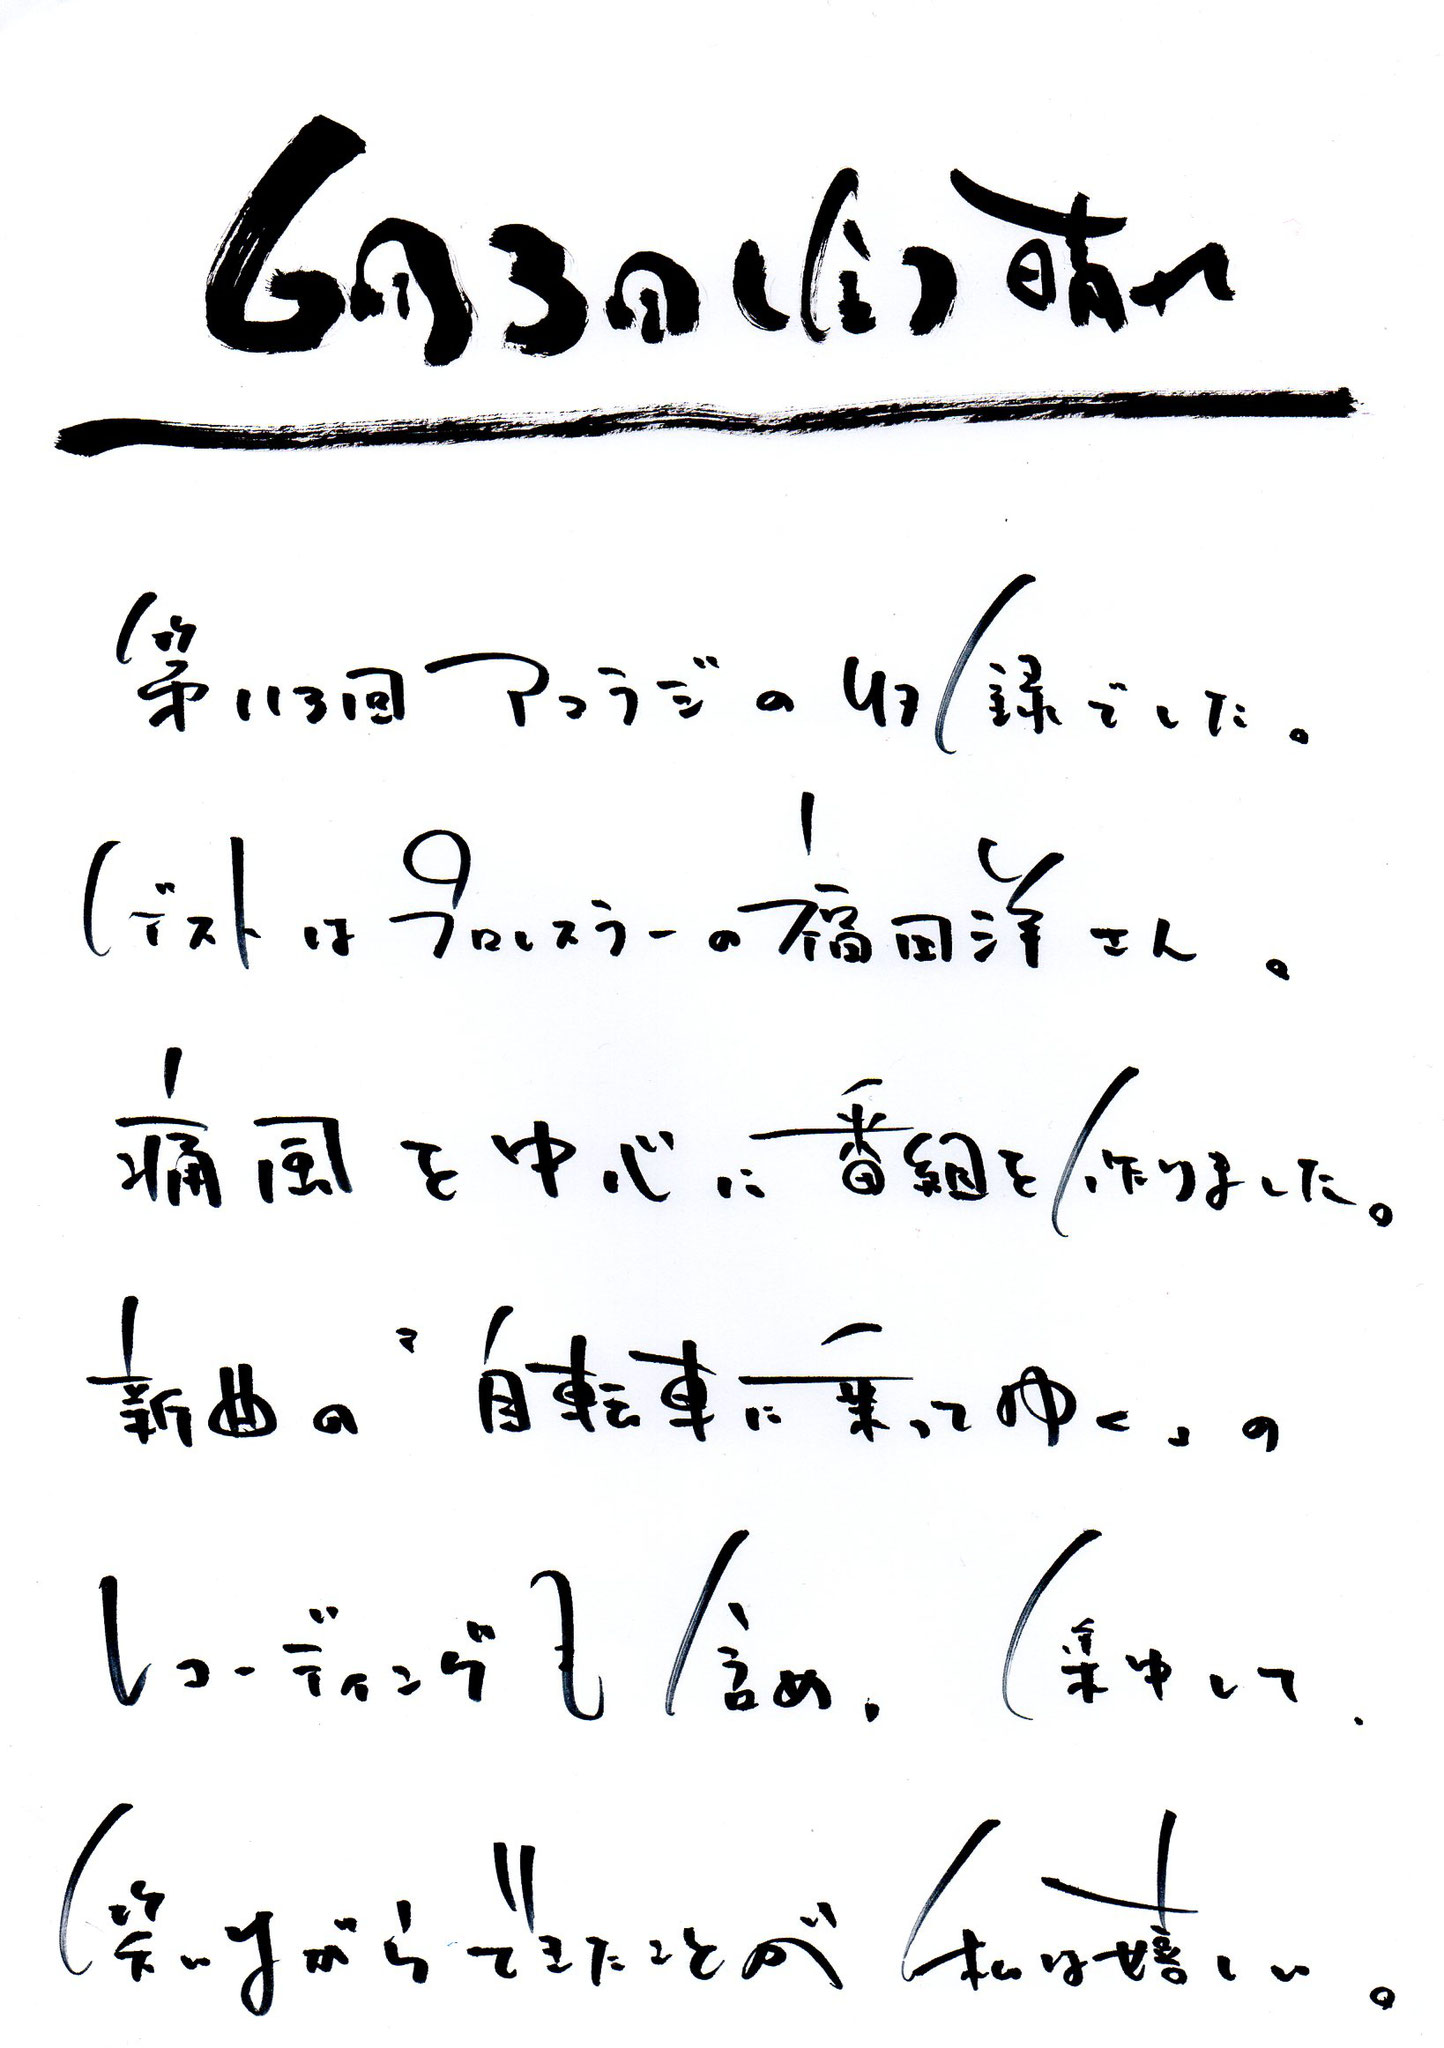 6月3日(金) 晴れ
第113回アコラジの収録でした。
ゲストはプロレスラーの福田洋さん。
痛風を中心に番組を作りました。
新曲の『自転車に乗ってゆく』の
レコーディングも含め、集中して、
笑いながらできたことが私は嬉しい。